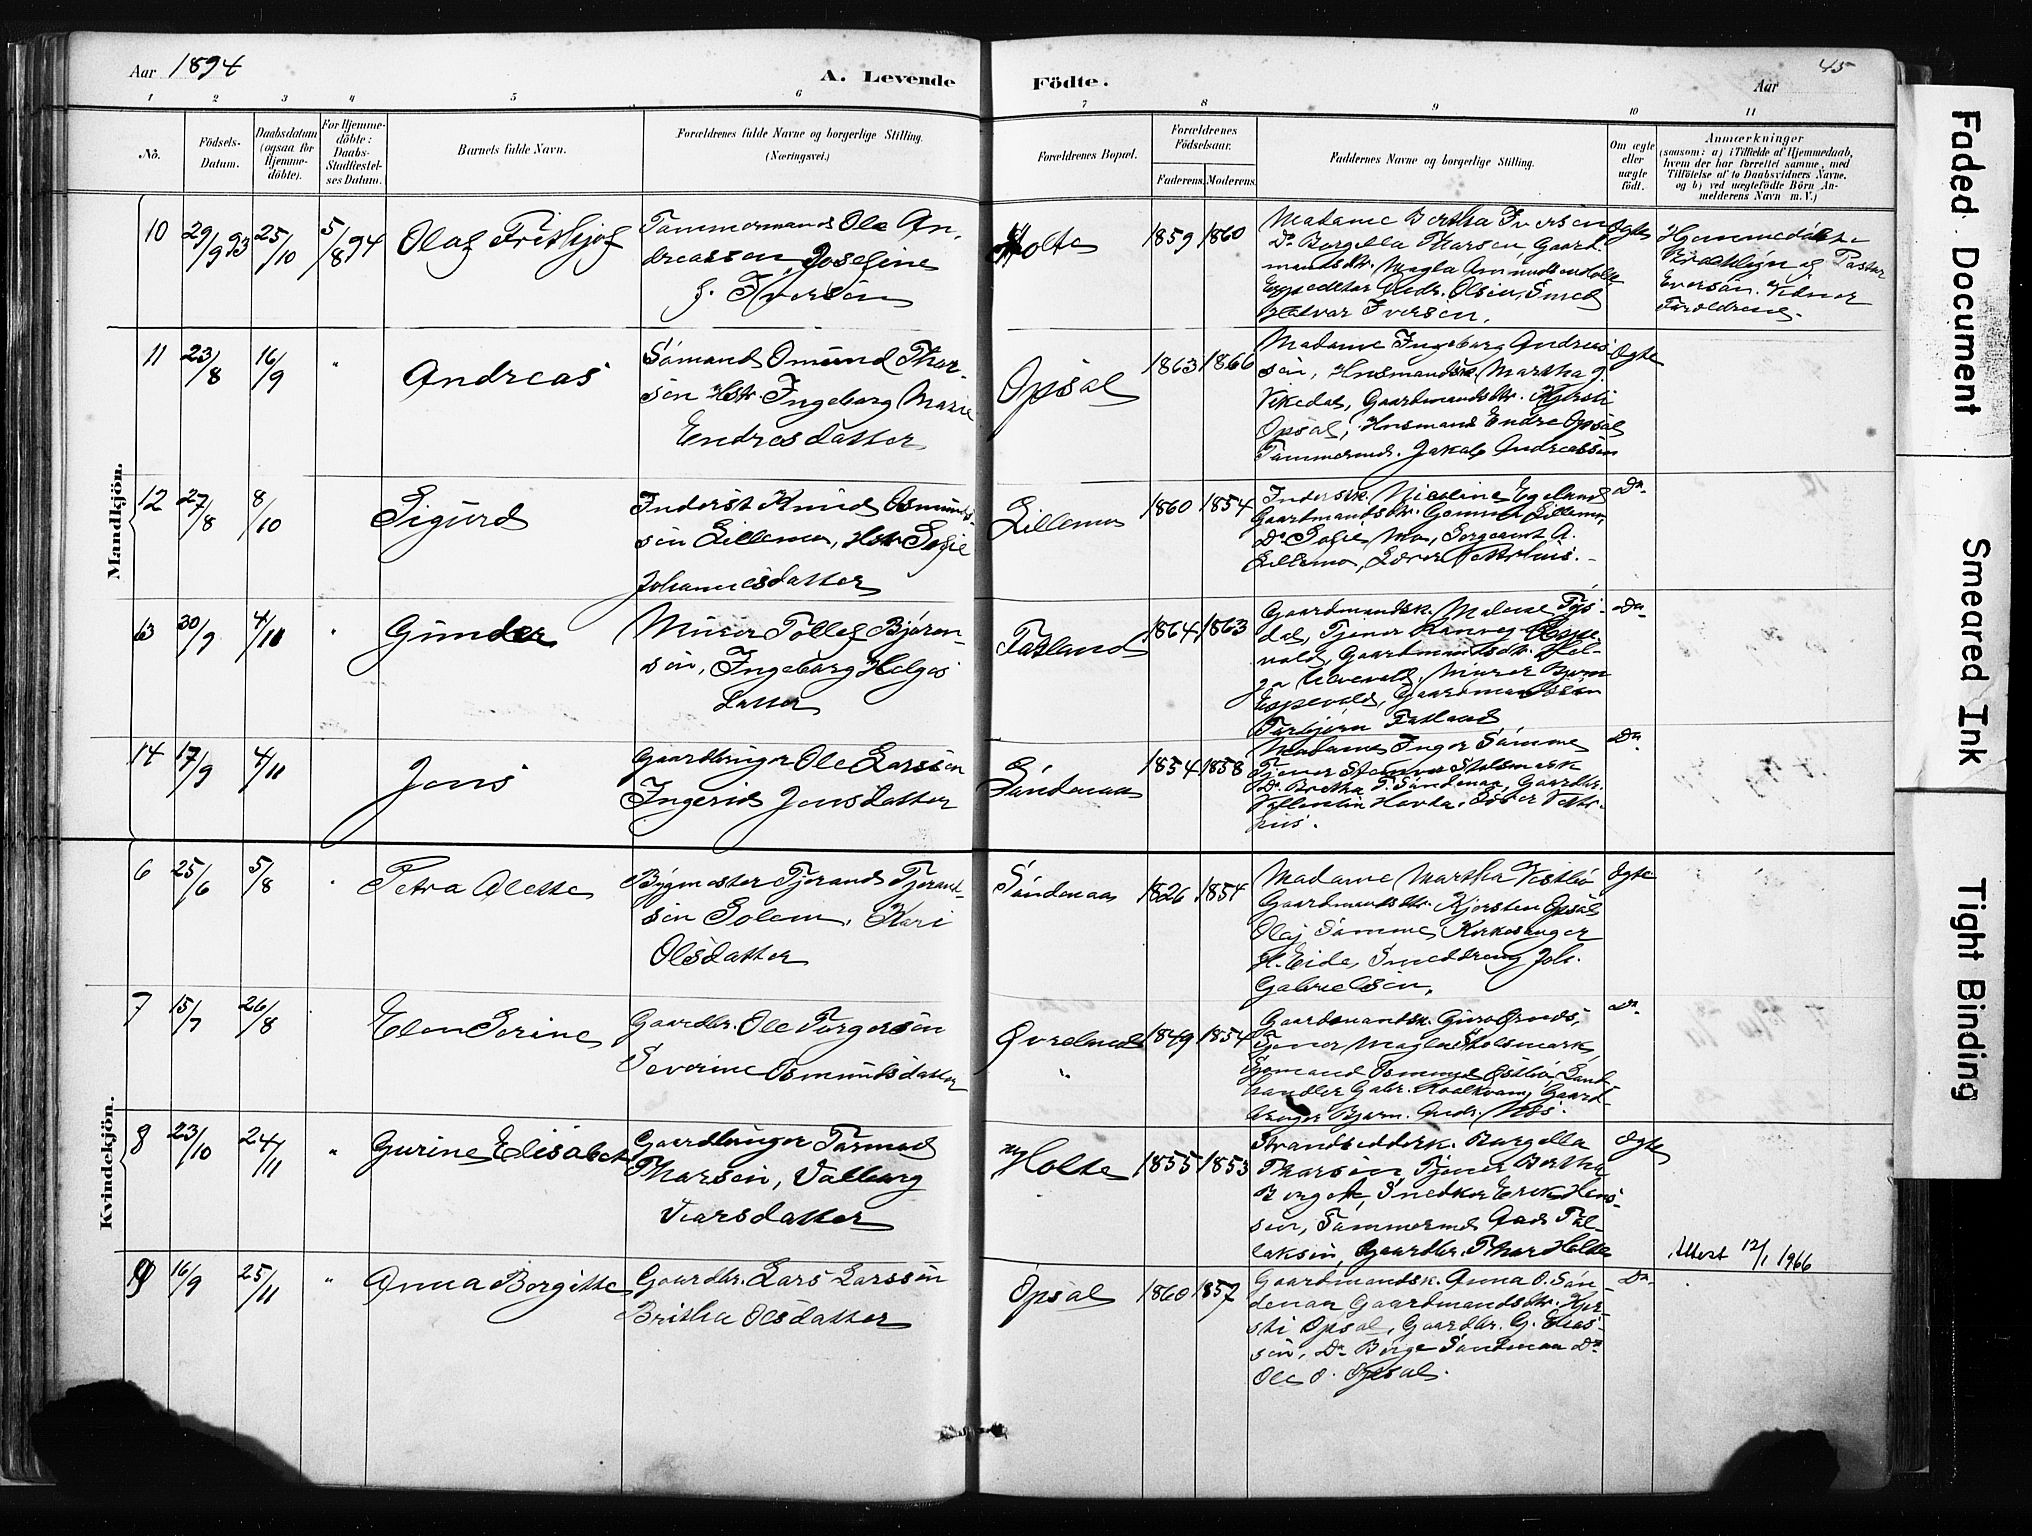 Aar 1894
A. Levende Födte.
Aar
45
1 2 3 4 5 6 7 8 9 10 11
No.
Födsels-
Datum.
Daabsdatum
(ogsaa for
Hjemme-
döbte).
For Hjemme-
döbte:
Daabs-
Stadfæstel-
ses Datum.
Barnets fulde Navn.
Forældrenes fulde Navne og borgerlige Stilling.
(Næringsvei.)
Forældrenes Bopæl.
Forældrenes
Födselsaar.
Faderens. Moderens.
Faddernes Navne og borgerlige Stilling.
Om ægte
eller
uægte
födt.
Anmærkninger
(saasom: a) i Tilfælde af Hjemmedaab,
hvem der har forrettet samme, med
Tilföielse af to Daabsvidners Navne.
og b) ved uægtefödte Börn An-
melderens Navn m.V.)
Mandkjön.
10 29/9 93 25/10 5/8 94 Olaf Frithjof
Tømmermand Ole An-
dreassen, Josefine
f. Iversen
Holte 1859 1860
Madame Bertha Iversen
Do Borgella Tharsen, Gaard-
mandsdtr. Magla Amundsen Holte
Andr. Olsen, Smed
Halvar Iversen.
Ægte
Hjemmedøbt i
Brooklyn af Pastor
Eversen. Vidner
Forældrene.
11 23/8 16/9 " Andreas
Sømand Omund Thor-
sen Hstr. Ingeborg Marie
Endresdatter
Opsal 1863 1866
Madame Ingeborg Andreas-
sen, Husmandsk. Martha J.
Vikedal, Gaardmandsdtr. Kjersti
Opsal, Husmand Endre Opsal
Tømmermd. Jakob Andreassen
Ægte
12 27/8 8/10 Sigurd
Inderst Knud Osmunds-
sen Lillemo, Hstr Sofie
Johannesdatter
Lillemo 1860 1854
Inderstk. Nicoline Egeland
Gaardmandsdtr. Gemine Lillemo,
Do Sofie Mo, Sergeant A.
Lillemo, Lærer Vetrhus.
Do
13 30/9 4/11 " Gunder
Murer Tollef Bjørn-
sen, Ingeborg Helges
datter
Fatland 1864 1863
Gaardmandsk. Malene Tys-
dal, Tjener Ranveg Espe-
vold, Gaardmandsdtr. Hel-
ga Ulvevold, Murer Bjørn
Espevold, Gaardmandssøn
Torbjørn Fatland
Do
14 17/9 4/11 Jens
Gaardbruger Ole Larssen
Ingerid Jensdatter
Søndenaa 1854 1858
Madame Inger Sømme
Tjener Stolsmark
Do Bertha T. Søndenaa, Gaardbr.
Vallentin Havrla, Lærer Vetr-
hus.
Do
Kvindekjön.
6 25/6 5/8 Petra Alette
Bygmester Tjerand Tjerand-
sen Solem, Kari
Olsdatter
Søndenaa 1826 1854
Madame Martha Vestbø
Gaardmandsdtr. Kjersten Opsal
Olaj Sømme, Kirkesanger
H. Eide, Smeddreng Joh.
Gabrielsen.
Ægte
7 15/7 26/8 " Elen Serine
Gaardbr. Ole Torgersen
Severine Osmundsdatter
Øvreland " 1849 1854
Gaardmandsk. Guro Ørnes,
Tjener Magla Stolsmark,
Sømand Tommes Østbø, Land-
handler Gabr. Roalkvam, Gaard-
bruger Bjørn Andr. Nes.
Do
8 23/10 24/11 " Gurine Elisabet
Gaardbruger Tormod
Tharsen, Valborg
Ivarsdatter
Holte 1855 1853
Strandsidderk. Borgella
Tharsen, Tjener Bertha
Borge, Snedker Erik Hans-
sen, Tømmermd Aad Tol-
laksen, Gaardbr. Thor Holte
Ægte
Attest 12/1 1966
9 16/9 25/11 " Anna Borgitte
Gaardbr. Lars Larssen
Britha Olsdatter
Opsal 1860 1857
Gaardmandsk. Anna O. Søn-
denaa Gaardmandsdtr. Kjer-
sti Opsal, Gaardbr. G. Elias-
sen, Do Børge Søndenaa Do
Ole O. Opsal.
Do
Faded Document
Smeared Ink
Tight Binding